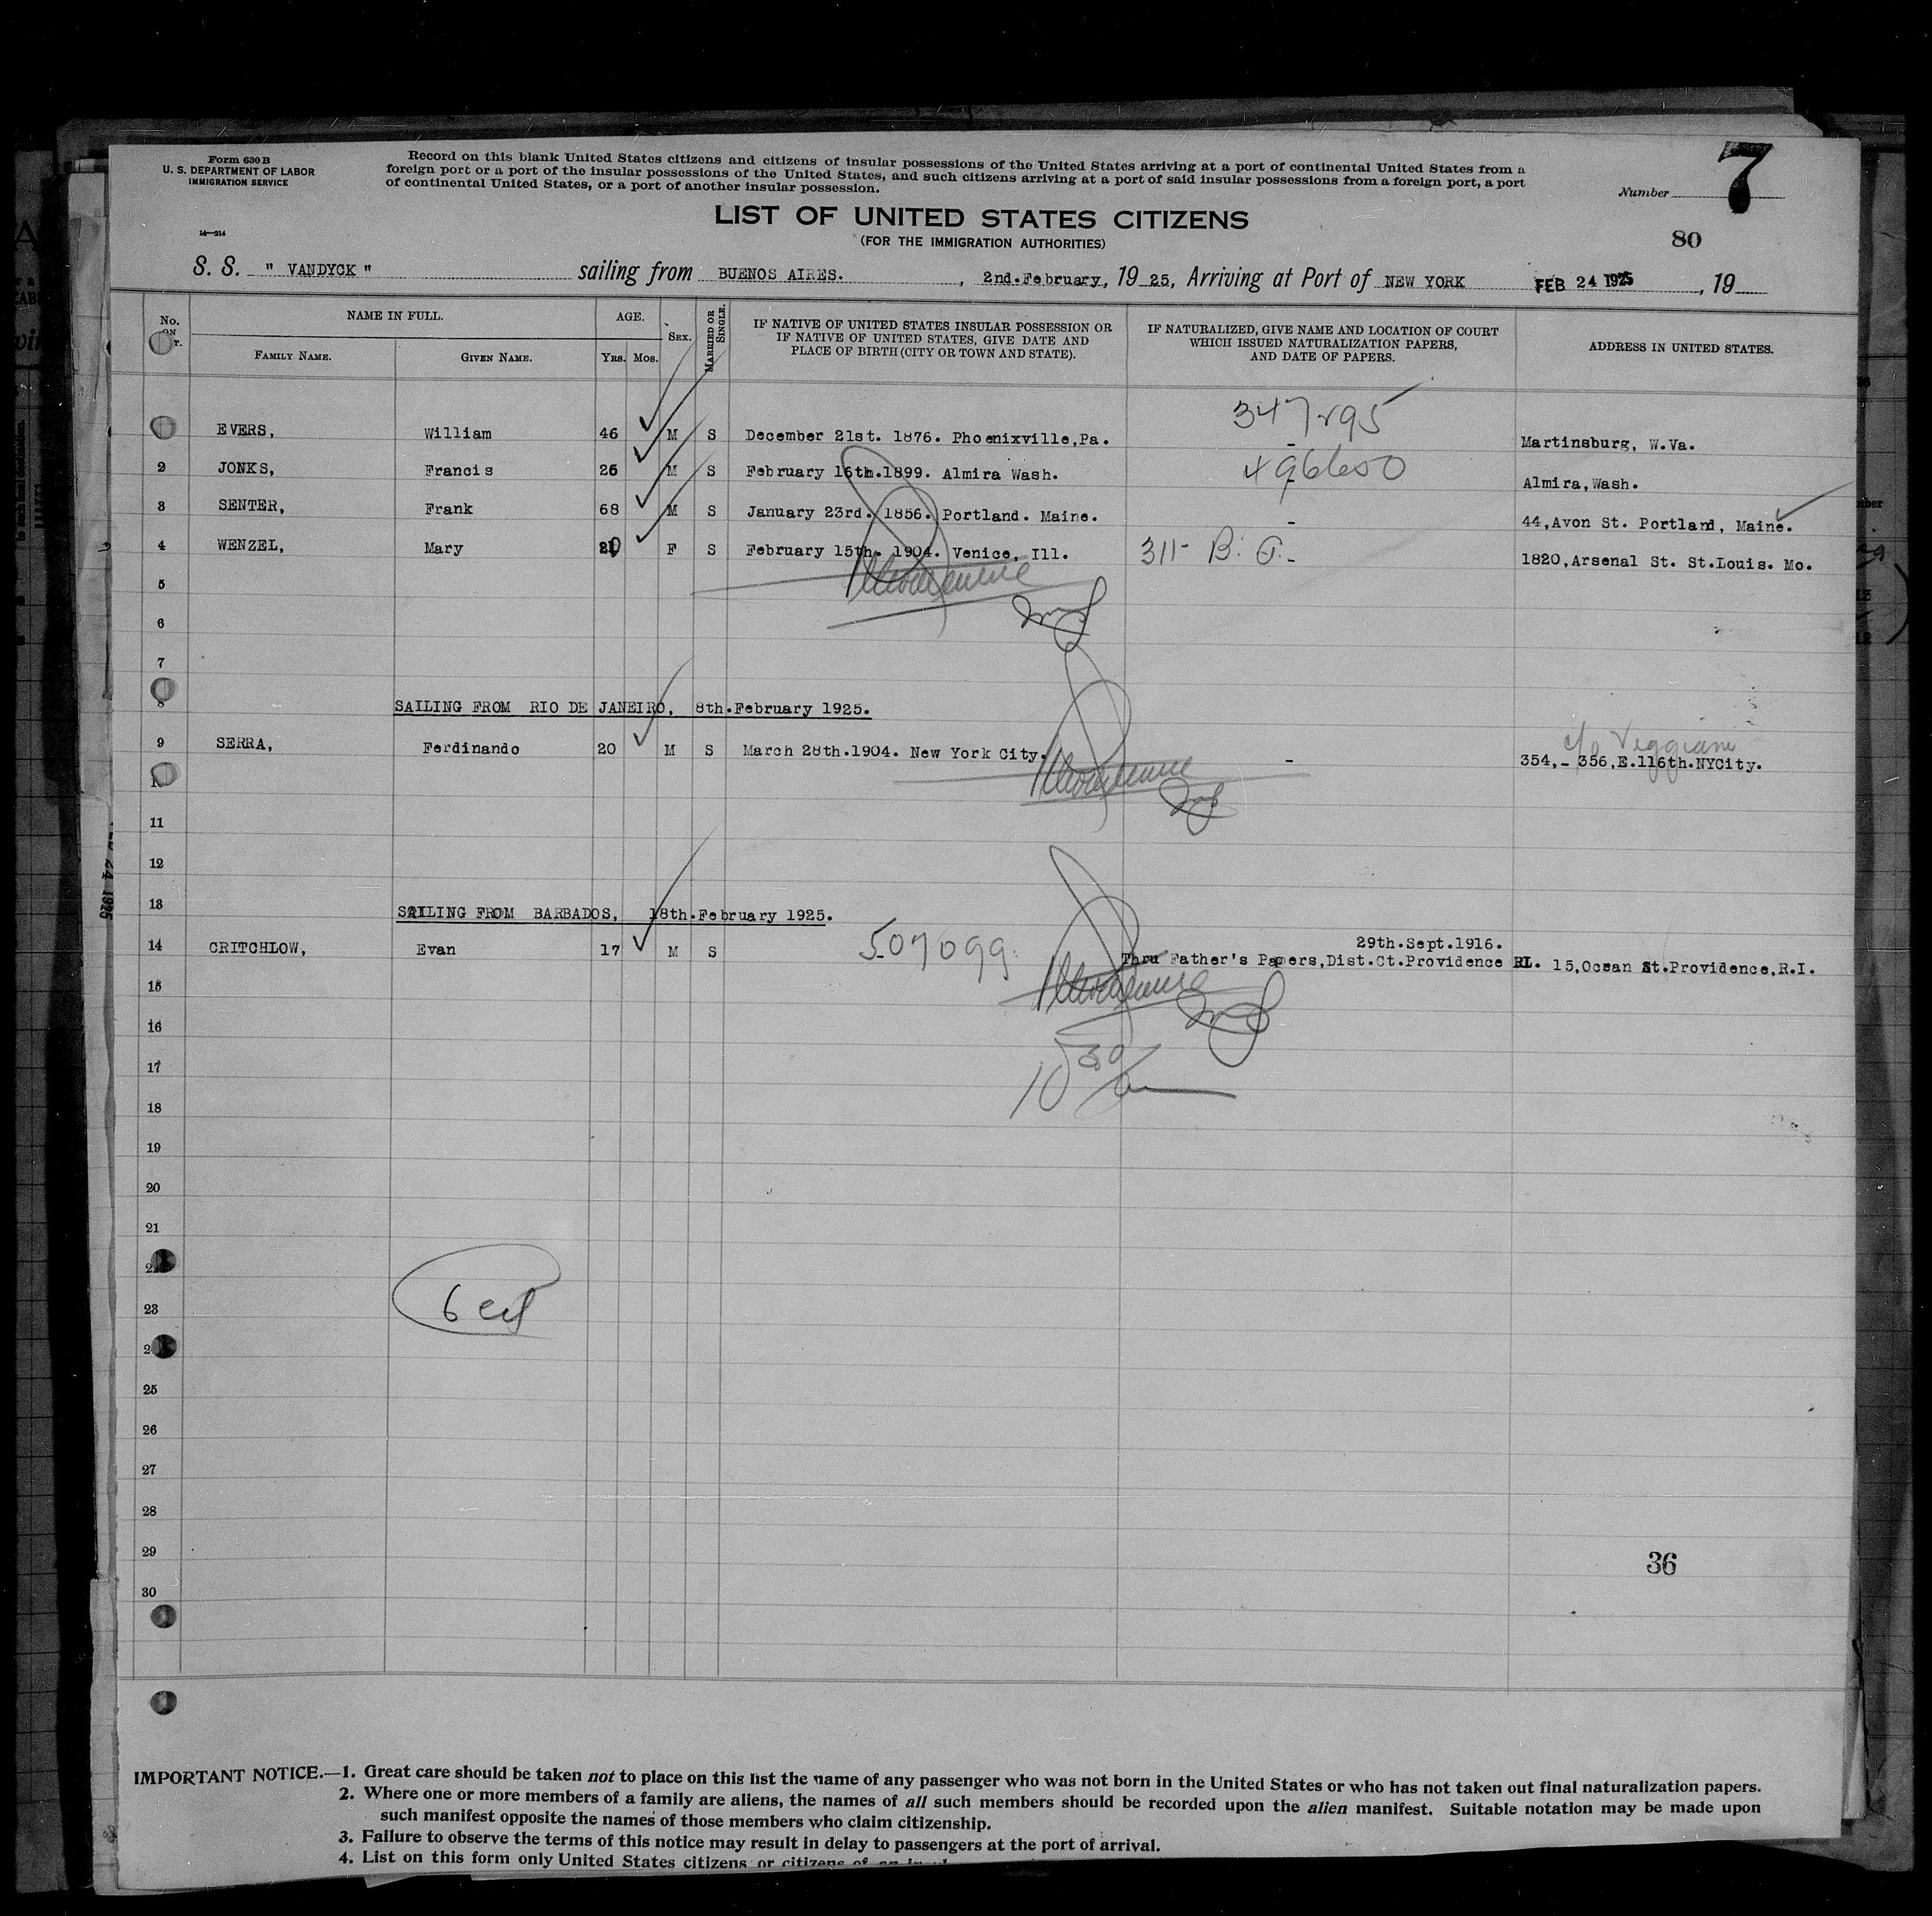 Form 630 B
U. S. DEPARTMENT OF LABOR
IMMIGRATION SERVICE
Record on this blank United States citizens and citizens of insular possessions of the United States arriving at a port of continental United States from a
foreign port or a port of the insular possessions of the United States, and such citizens arriving at a port of said insular possessions from a foreign port, a port
of continental United States, or a port of another insular possession.
Number 7
14—214
LIST OF UNITED STATES CITIZENS
(FOR THE IMMIGRATION AUTHORITIES)
80
S. S. " VANDYCK " sailing from BUENOS AIRES. , 2nd.February, 19 25, Arriving at Port of NEW YORK FEB 24 1925 , 19
No. ON
NAME IN FULL.
FAMILY NAME. GIVEN NAME.
AGE.
YRS. MOS.
SEX.
MARRIED OR SINGLE.
IF NATIVE OF UNITED STATES INSULAR POSSESSION OR
IF NATIVE OF UNITED STATES, GIVE DATE AND
PLACE OF BIRTH (CITY OR TOWN AND STATE).
IF NATURALIZED, GIVE NAME AND LOCATION OF COURT
WHICH ISSUED NATURALIZATION PAPERS,
AND DATE OF PAPERS.
ADDRESS IN UNITED STATES.
347295
EVERS, William 46 M S December 21st. 1876. Phoenixville,Pa. - Martinsburg, W.Va.
2 JONKS, Francis 26 M S February 16th.1899. Almira Wash. 496600 - Almira,Wash.
3 SENTER, Frank 68 M S January 23rd. 1856. Portland. Maine. - 44,Avon St. Portland, Maine.
4 WENZEL, Mary 20 F S February 15th. 1904. Venice, Ill. 311- B. C. - 1820,Arsenal St. St.Louis. Mo.
5
6
7
8 SAILING FROM RIO DE JANEIRO, 8th.February 1925.
c/o Veggiani
9 SERRA, Ferdinando 20 M S March 28th.1904. New York City. - 354,- 356,E.116th.NYCity.
10
11
12
13 SAILING FROM BARBADOS, 18th.February 1925.
29th.Sept.1916.
14 CRITCHLOW, Evan 17 M S 507099. Thru Father's Papers,Dist.Ct.Providence RI. 15,Ocean St.Providence,R.I.
15
16
17 10 30
18
19
20
21
22
23 6
24
25
26
27
28
29 36
30
FEB 24 1925
IMPORTANT NOTICE.—1. Great care should be taken not to place on this list the name of any passenger who was not born in the United States or who has not taken out final naturalization papers.
2. Where one or more members of a family are aliens, the names of all such members should be recorded upon the alien manifest. Suitable notation may be made upon
such manifest opposite the names of those members who claim citizenship.
3. Failure to observe the terms of this notice may result in delay to passengers at the port of arrival.
4. List on this form only United States citizens or citizens of an